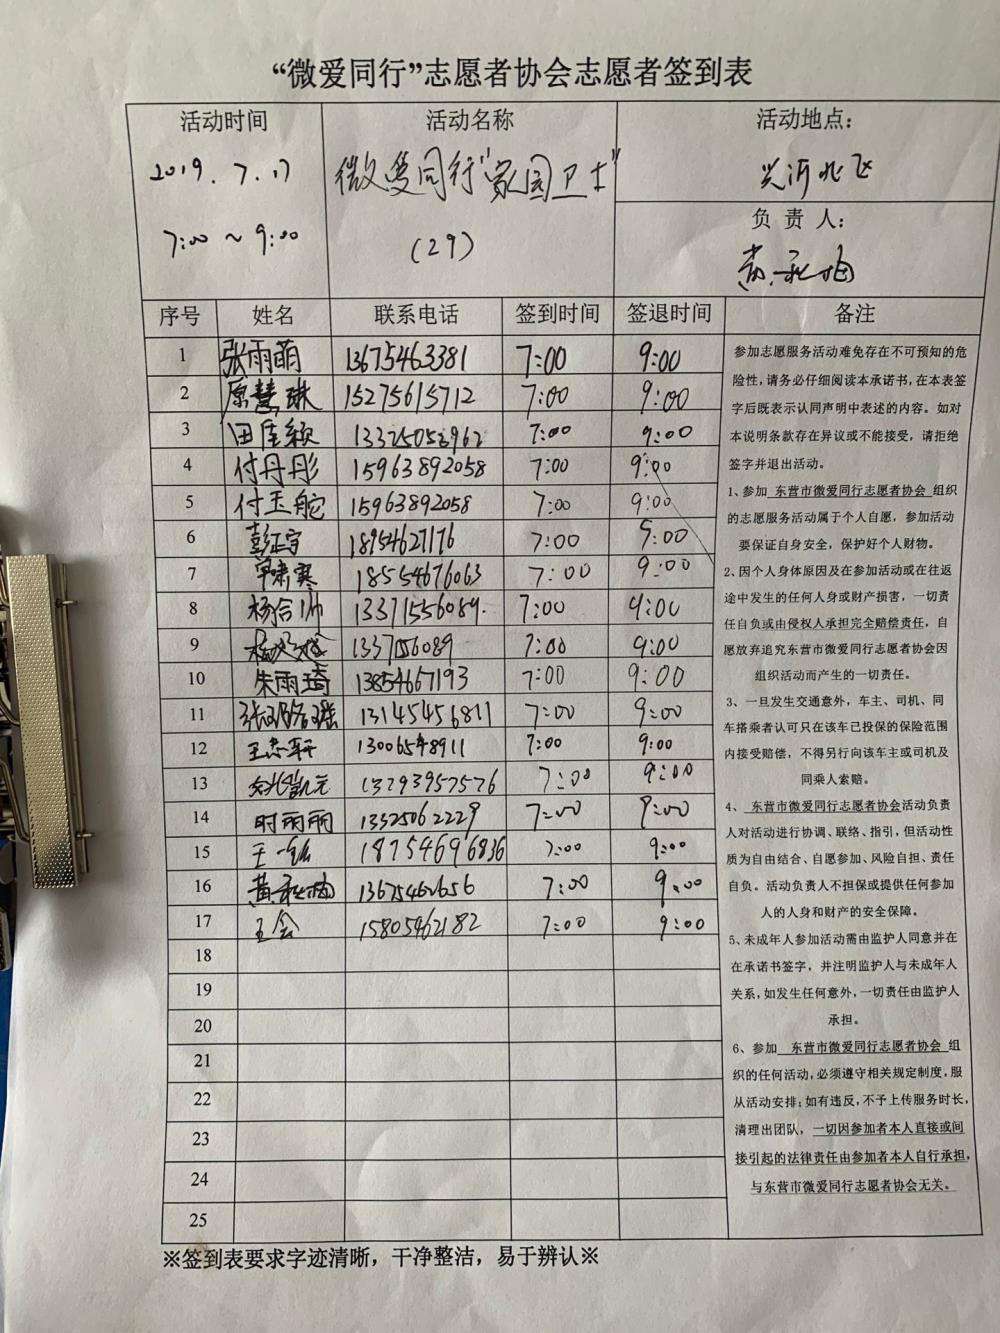 “微爱同行”志愿者协会志愿者签到表
活动时间
2019.7.17
7:00~9:00
活动名称
微爱同行“家园卫士”
(29)
活动地点：
负责人：
黄秋梅
序号 姓名 联系电话 签到时间 签退时间 备注
1 张雨萌 13675463381 7:00 9:00
2 原慧琳 15275615712 7:00 9:00
3 田佳颖 13325053962 7:00 9:00
4 付丹彤 15963892058 7:00 9:00
5 付玉舵 15963892058 7:00 9:00
6 彭正宇 18954627176 7:00 9:00
7 单肃寒 18554676063 7:00 9:00
8 杨合帅 13371556089. 7:00 9:00
9 1337056089 7:00 9:00
10 朱雨琦 13854667193 7:00 9:00
11 张璐瑶 13145456811 7:00 9:00
12 王志轩 7:00 9:00
13 13293957576 7:00 9:00
14 时雨雨 13325062229 7:00 9:00
15 王一 18754696836 7:00 9:00
16 黄秋梅 13675462656 7:00 9:00
17 王会 15805462182 7:00 9:00
18
19
20
21
22
23
24
25
参加志愿服务活动难免存在不可预知的危
险性，请务必仔细阅读本承诺书，在本表签
字后既表示认同声明中表述的内容。如对
本说明条款存在异议或不能接受，请拒绝
签字并退出活动。
1、参加 东营市微爱同行志愿者协会 组织
的志愿服务活动属于个人自愿，参加活动
要保证自身安全，保护好个人财物。
2、因个人身体原因及在参加活动或在往返
途中发生的任何人身或财产损害，一切责
任自负或由侵权人承担完全赔偿责任，自
愿放弃追究东营市微爱同行志愿者协会因
组织活动而产生的一切责任。
3、一旦发生交通意外，车主、司机、同
车搭乘者认可只在该车已投保的保险范围
内接受赔偿，不得另行向该车主或司机及
同乘人索赔。
4、 东营市微爱同行志愿者协会活动负责
人对活动进行协调、联络、指引，但活动性
质为自由结合、自愿参加、风险自担、责任
自负。活动负责人不担保或提供任何参加
人的人身和财产的安全保障。
5、未成年人参加活动需由监护人同意并在
在承诺书签字，并注明监护人与未成年人
关系，如发生任何意外，一切责任由监护人
承担。
6、参加 东营市微爱同行志愿者协会 组
织的任何活动，必须遵守相关规定制度，服
从活动安排；如有违反，不予上传服务时长，
清理出团队，一切因参加者本人直接或间
接引起的法律责任由参加者本人自行承担，
与东营市微爱同行志愿者协会无关。
※签到表要求字迹清晰，干净整洁，易于辨认※